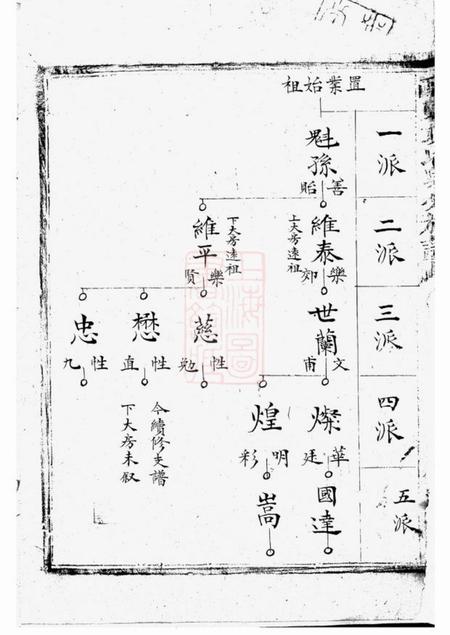 置業始祖
一派
魁孫
善貽
二派
維泰
樂郊
上大房逺祖
維平
樂賢
下大房逺祖
三派
世蘭
文甫
慈
性勉
懋
性直
忠
性九
四派
燦
華廷
煌
明彩
今續修支譜
下大房未叙
五派
國達
嵩